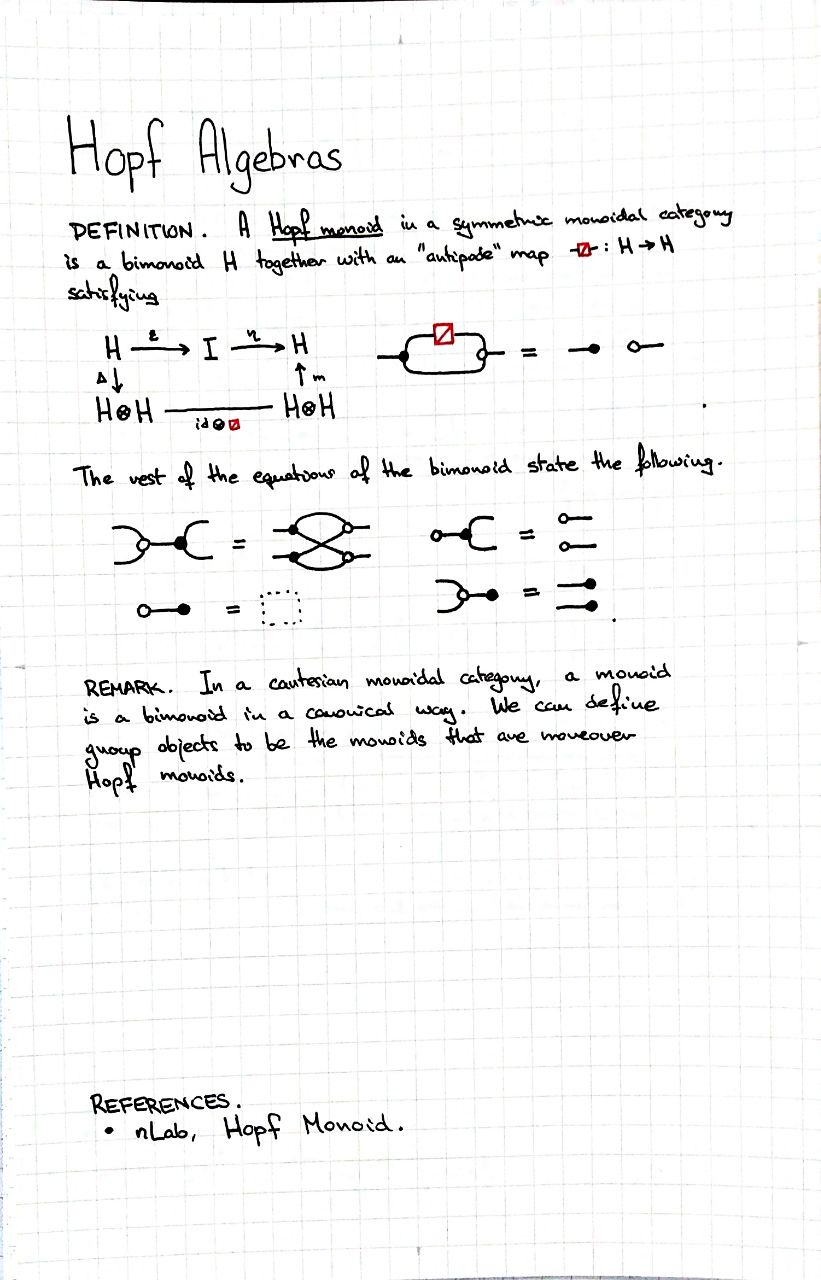 Hopf Algebras
DEFINITION. A Hopf monoid in a symmetric monoidal category
is a bimonoid H together with an "antipode" map : H → H
satisfying
H ε→ I η→ H
Δ↓ ↑m
H⊗H — H⊗H
id⊗
=
The rest of the equations of the bimonoid state the following.
= =
= =
REMARK. In a cartesian monoidal category, a monoid
is a bimonoid in a canonical way. We can define
group objects to be the monoids that are moreover
Hopf monoids.
REFERENCES.
• nLab, Hopf Monoid.